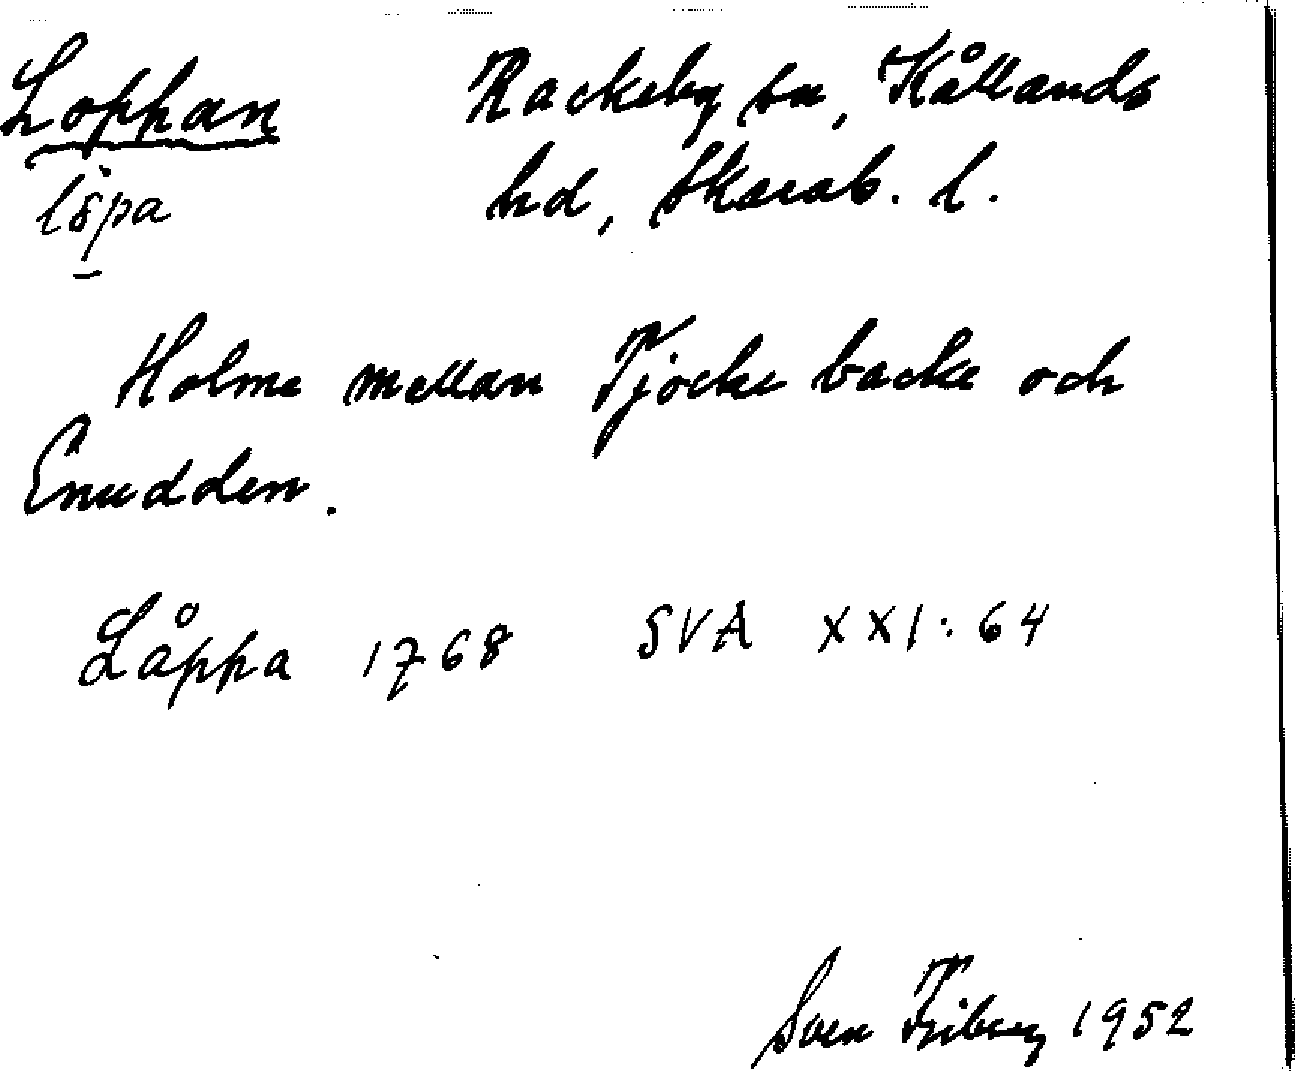 Loppan Rackeby sn, Kållands
hd, Skarab. l.
Holme mellan Tjocke backe och
Enudden.
Låppa 1768 SVA XXI:64
Sven Friberg 1952